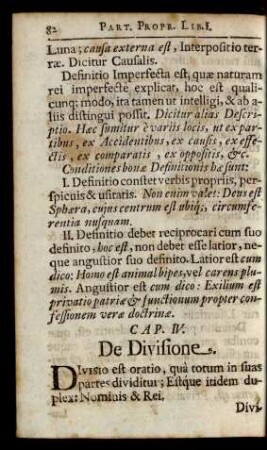 82 PART. PROPR. LIB. I.
Luna; causa externa est, Interpositio ter-
ræ. Dicitur Causalis.
Definitio Imperfecta est, quæ naturam
rei imperfecte explicat, hoc est quali-
cunq; modo, ita tamen ut intelligi, & ab a-
liis distingui possit. Dicitur alias Descri-
ptio. Hæc sumitur è variis locis, ut ex par-
tibus, ex Accidentibus, ex causis, ex effe-
ctis, ex comparatis, ex oppositis, &c.
Conditiones bonæ Definitionis hæ sunt:
I. Definitio constet verbis propriis, per-
spicuis & usitatis. Non enim valet: Deus est
Sphæra, cujus centrum est ubiq;, circumfe-
rentia nusquam.
II. Definitio debet reciprocari cum suo
definito, hoc est, non debet esse latior, ne-
que angustior suo definito. Latior est cum
dico: Homo est animal bipes, vel carens plu-
mis. Angustior est cum dico: Exilium est
privatio patriæ & functionum propter con-
fessionem veræ doctrinæ.
CAP. IV.
De Divisione.
DIVISIO est oratio, quâ totum in suas
partes dividitur; Estque itidem du-
plex: Nominis & Rei.
Divi-